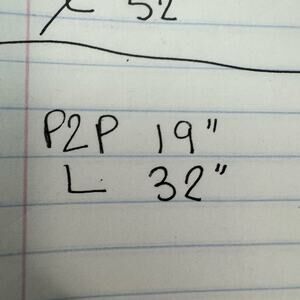 52
P2P 19"
L 32"